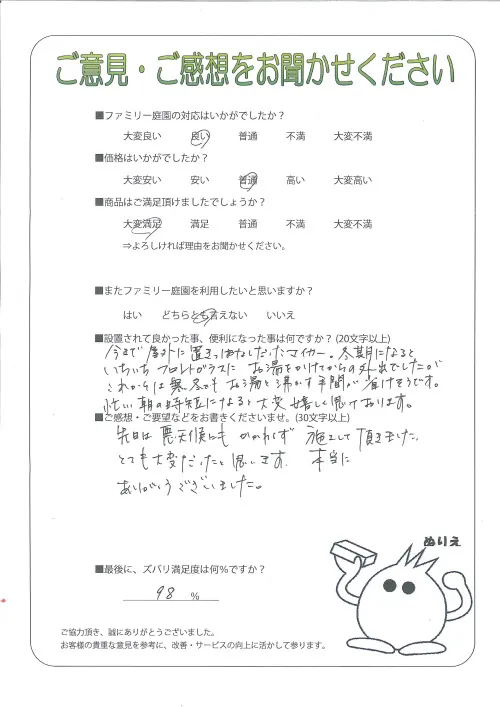 ご意見・ご感想をお聞かせください
■ファミリー庭園の対応はいかがでしたか？
大変良い 良い 普通 不満 大変不満
■価格はいかがでしたか？
大変安い 安い 普通 高い 大変高い
■商品はご満足頂けましたでしょうか？
大変満足 満足 普通 不満 大変不満
⇒よろしければ理由をお聞かせください。
■またファミリー庭園を利用したいと思いますか？
はい どちらとも言えない いいえ
■設置されて良かった事、便利になった事は何ですか？(20文字以上)
今まで屋外に置きっぱなしだったマイカー。冬期になると
いちいちフロントガラスに お湯をかけてからの外出でしたが
これからは寒冬でも お湯を沸かす手間が省けそうです。
忙しい朝の時短になると大変嬉しく思っております。
■ご感想・ご要望などをお書きくださいませ。(30文字以上)
先日は悪天候にも かかわらず 施工して頂きました。
とても大変だったと思います。 本当に
ありがとうございました。
ぬりえ
■最後に、ズバリ満足度は何%ですか？
98 %
ご協力頂き、誠にありがとうございました。
お客様の貴重な意見を参考に、改善・サービスの向上に活かして参ります。